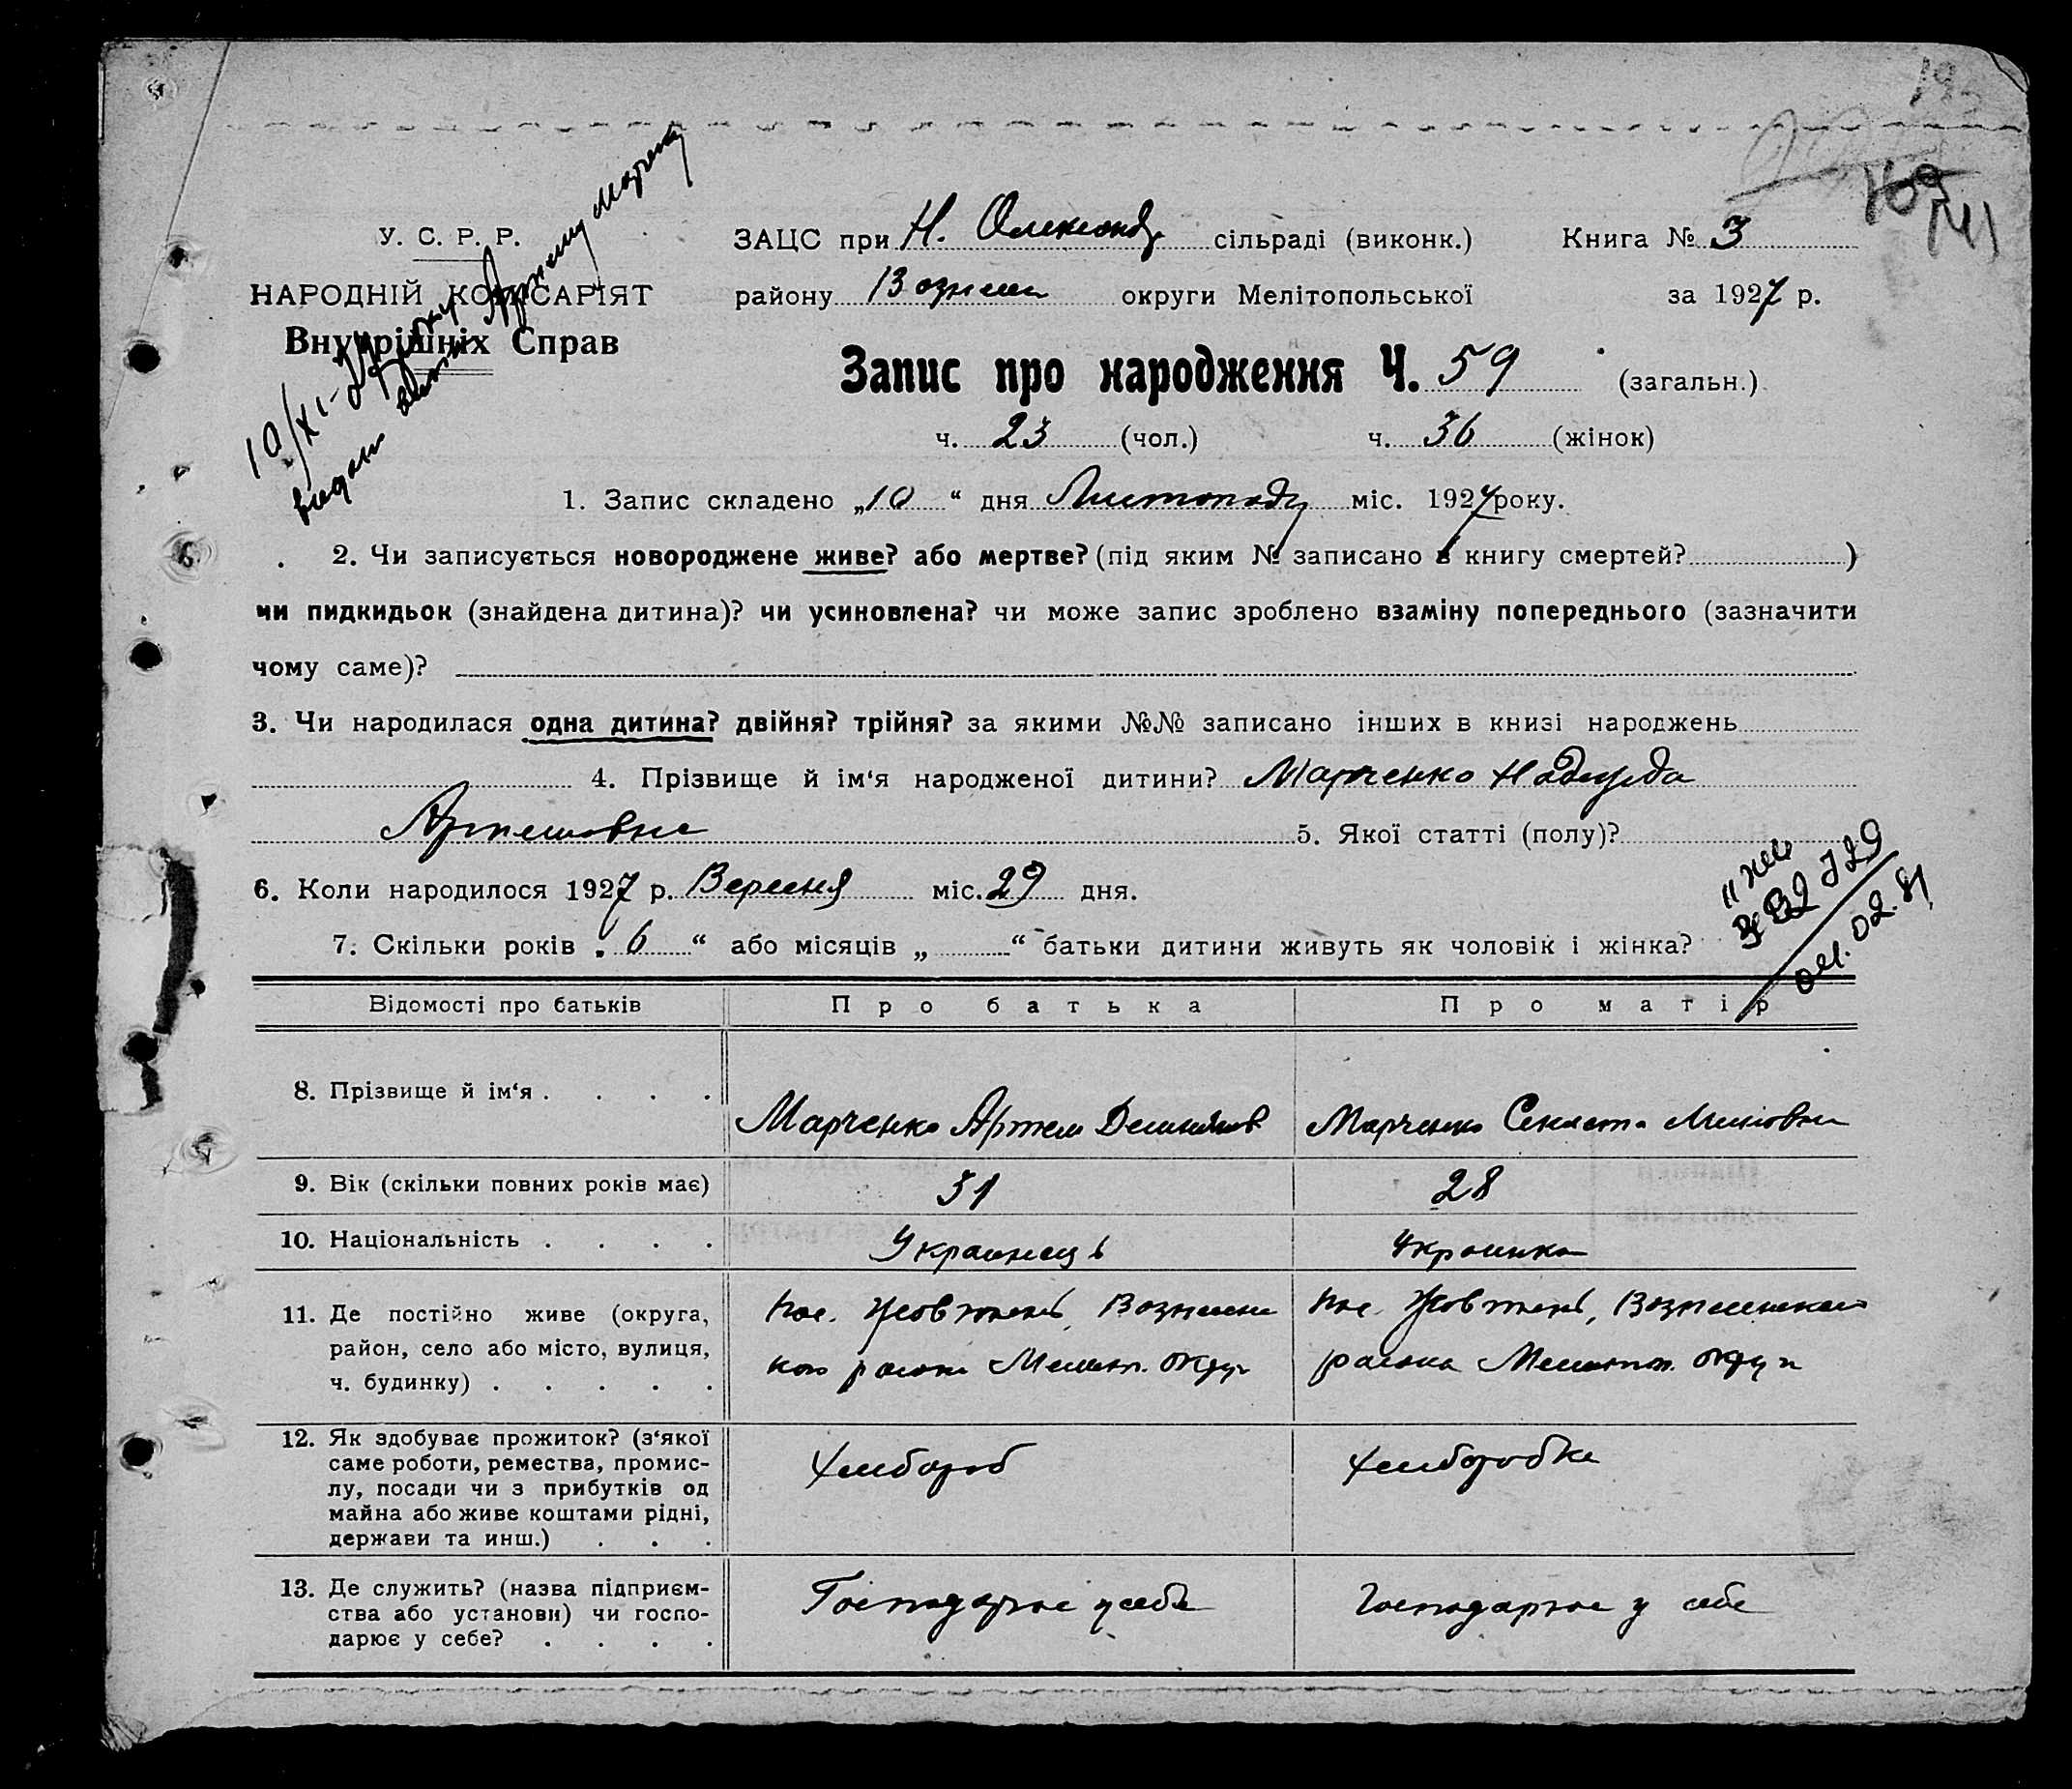 У. С. Р. Р.
НАРОДНІЙ КОМІСАРІЯТ
Внутрішніх Справ
10/XI-27
ЗАЦС при Н. Олександр сільраді (виконк.) Книга № 3
району Возн округи Мелітопольської за 1927 р.
Запис про народження Ч. 59 (загальн.)
ч. 23 (чол.) ч. 36 (жінок)
1. Запис складено „10“ дня Листопаду міс. 1927 року.
2. Чи записується новороджене живе? або мертве? (під яким № записано в книгу смертей? )
чи пидкидьок (знайдена дитина)? чи усиновлена? чи може запис зроблено взаміну попереднього (зазначити
чому саме)?
3. Чи народилася одна дитина? двійня? трійня? за якими №№ записано інших в книзі народжень
4. Прізвище й ім‘я народженої дитини? Марченко Надежда
Артемовна 5. Якої статті (полу)?
6. Коли народилося 1927 р. Вересня міс. 29 дня.
7. Скільки років „6“ або місяців „ “ батьки дитини живуть як чоловік і жінка?
Відомості про батьків Про батька Про матір
8. Прізвище й ім‘я . . . . Марченко Артем Марченко
9. Вік (скільки повних років має) 31 28
10. Національність . . . . Украинець Украинка
11. Де постійно живе (округа, район, село або місто, вулиця, ч. будинку) . . . . .
пос. Жовтень, Вознесен
кого района Мелитоп. округ
пос. Жовтень, Вознесенского
района Мелитоп. округи
12. Як здобуває прожиток? (з‘якої саме роботи, ремества, промислу, посади чи з прибутків од майна або живе коштами рідні, держави та инш.) . . . Хлибороб Хлиборобка
13. Де служить? (назва підприємства або установи) чи господарює у себе? . . . . Господарює у себе Господарює у себе